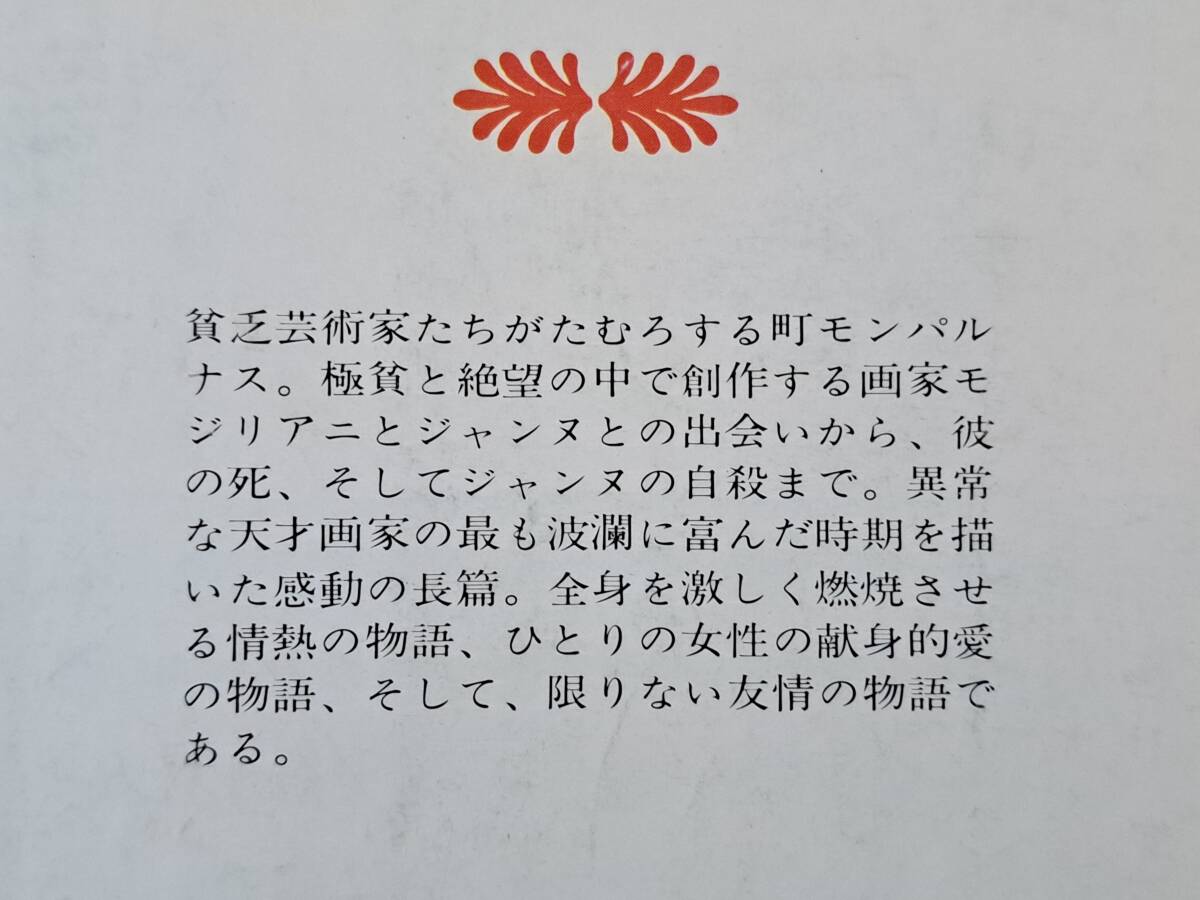 貧乏芸術家たちがたむろする町モンパル
ナス。極貧と絶望の中で創作する画家モ
ジリアニとジャンヌとの出会いから、彼
の死、そしてジャンヌの自殺まで。異常
な天才画家の最も波瀾に富んだ時期を描
いた感動の長篇。全身を激しく燃焼させ
る情熱の物語、ひとりの女性の献身的愛
の物語、そして、限りない友情の物語で
ある。